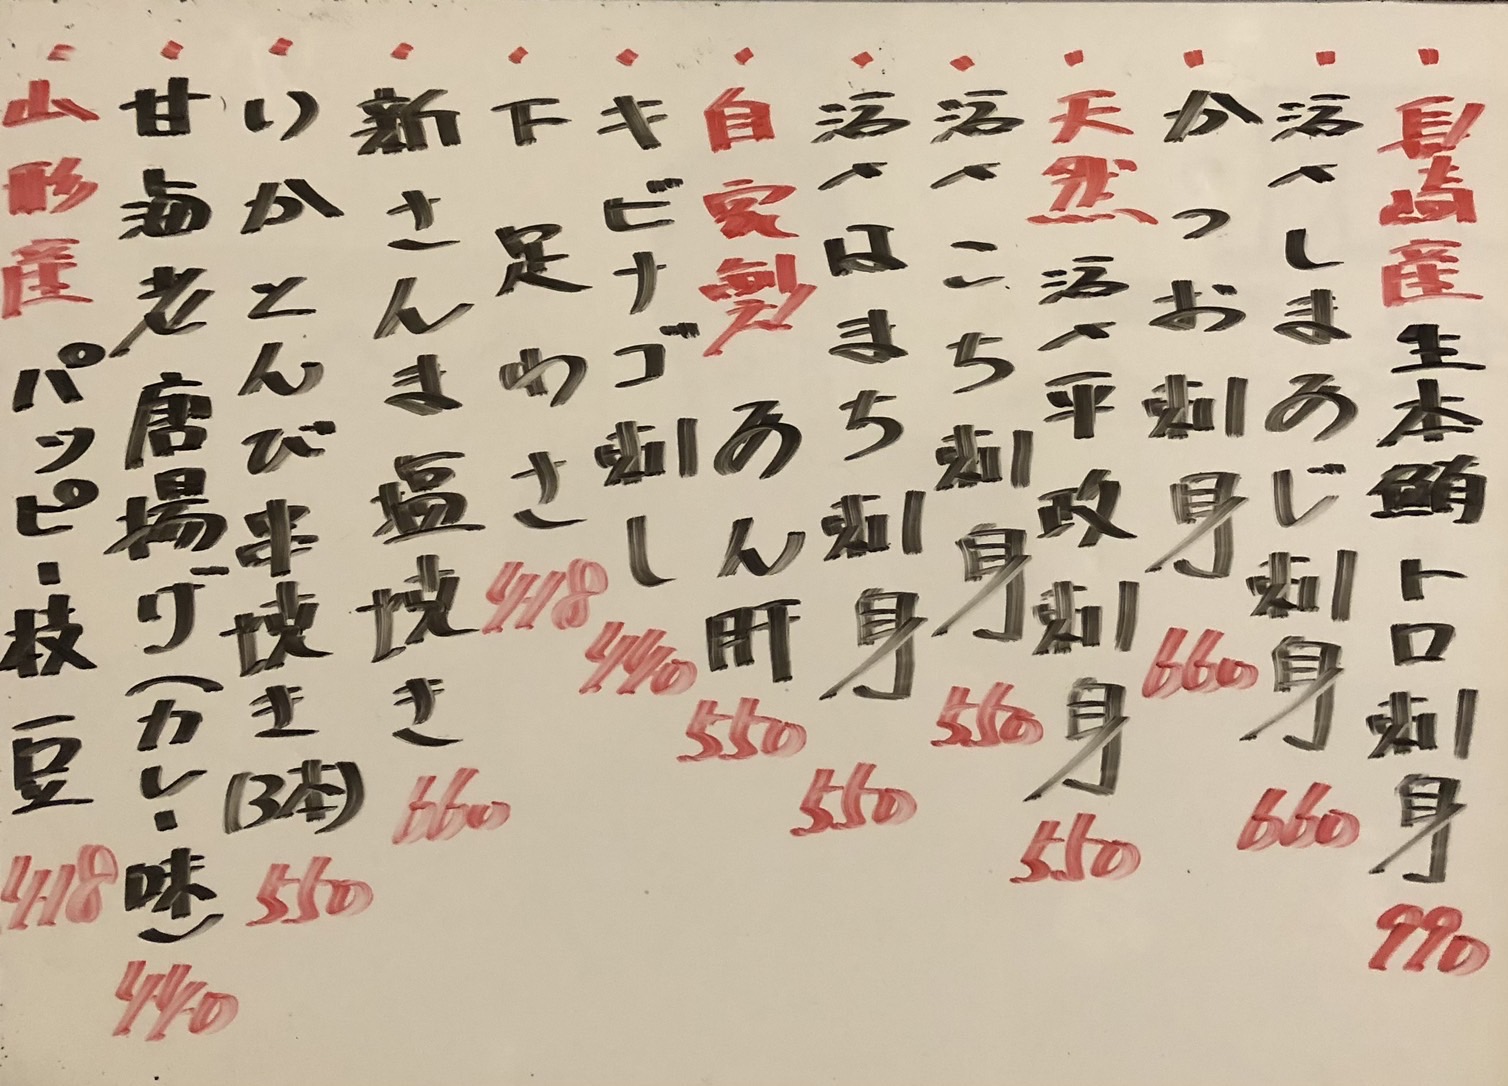 ・長崎産生本鮪トロ刺身 990
・活〆しまあじ刺身 660
・かつお刺身 660
・天然活〆平政刺身 550
・活〆こち刺身 550
・活〆はまち刺身 550
・自家製あん肝 550
・キビナゴ刺し 440
・下足わさ 418
・新さんま塩焼き 660
・いかとんび串焼き(3本) 550
・甘海老唐揚げ(カレー味) 440
・山形産パッピー枝豆 418